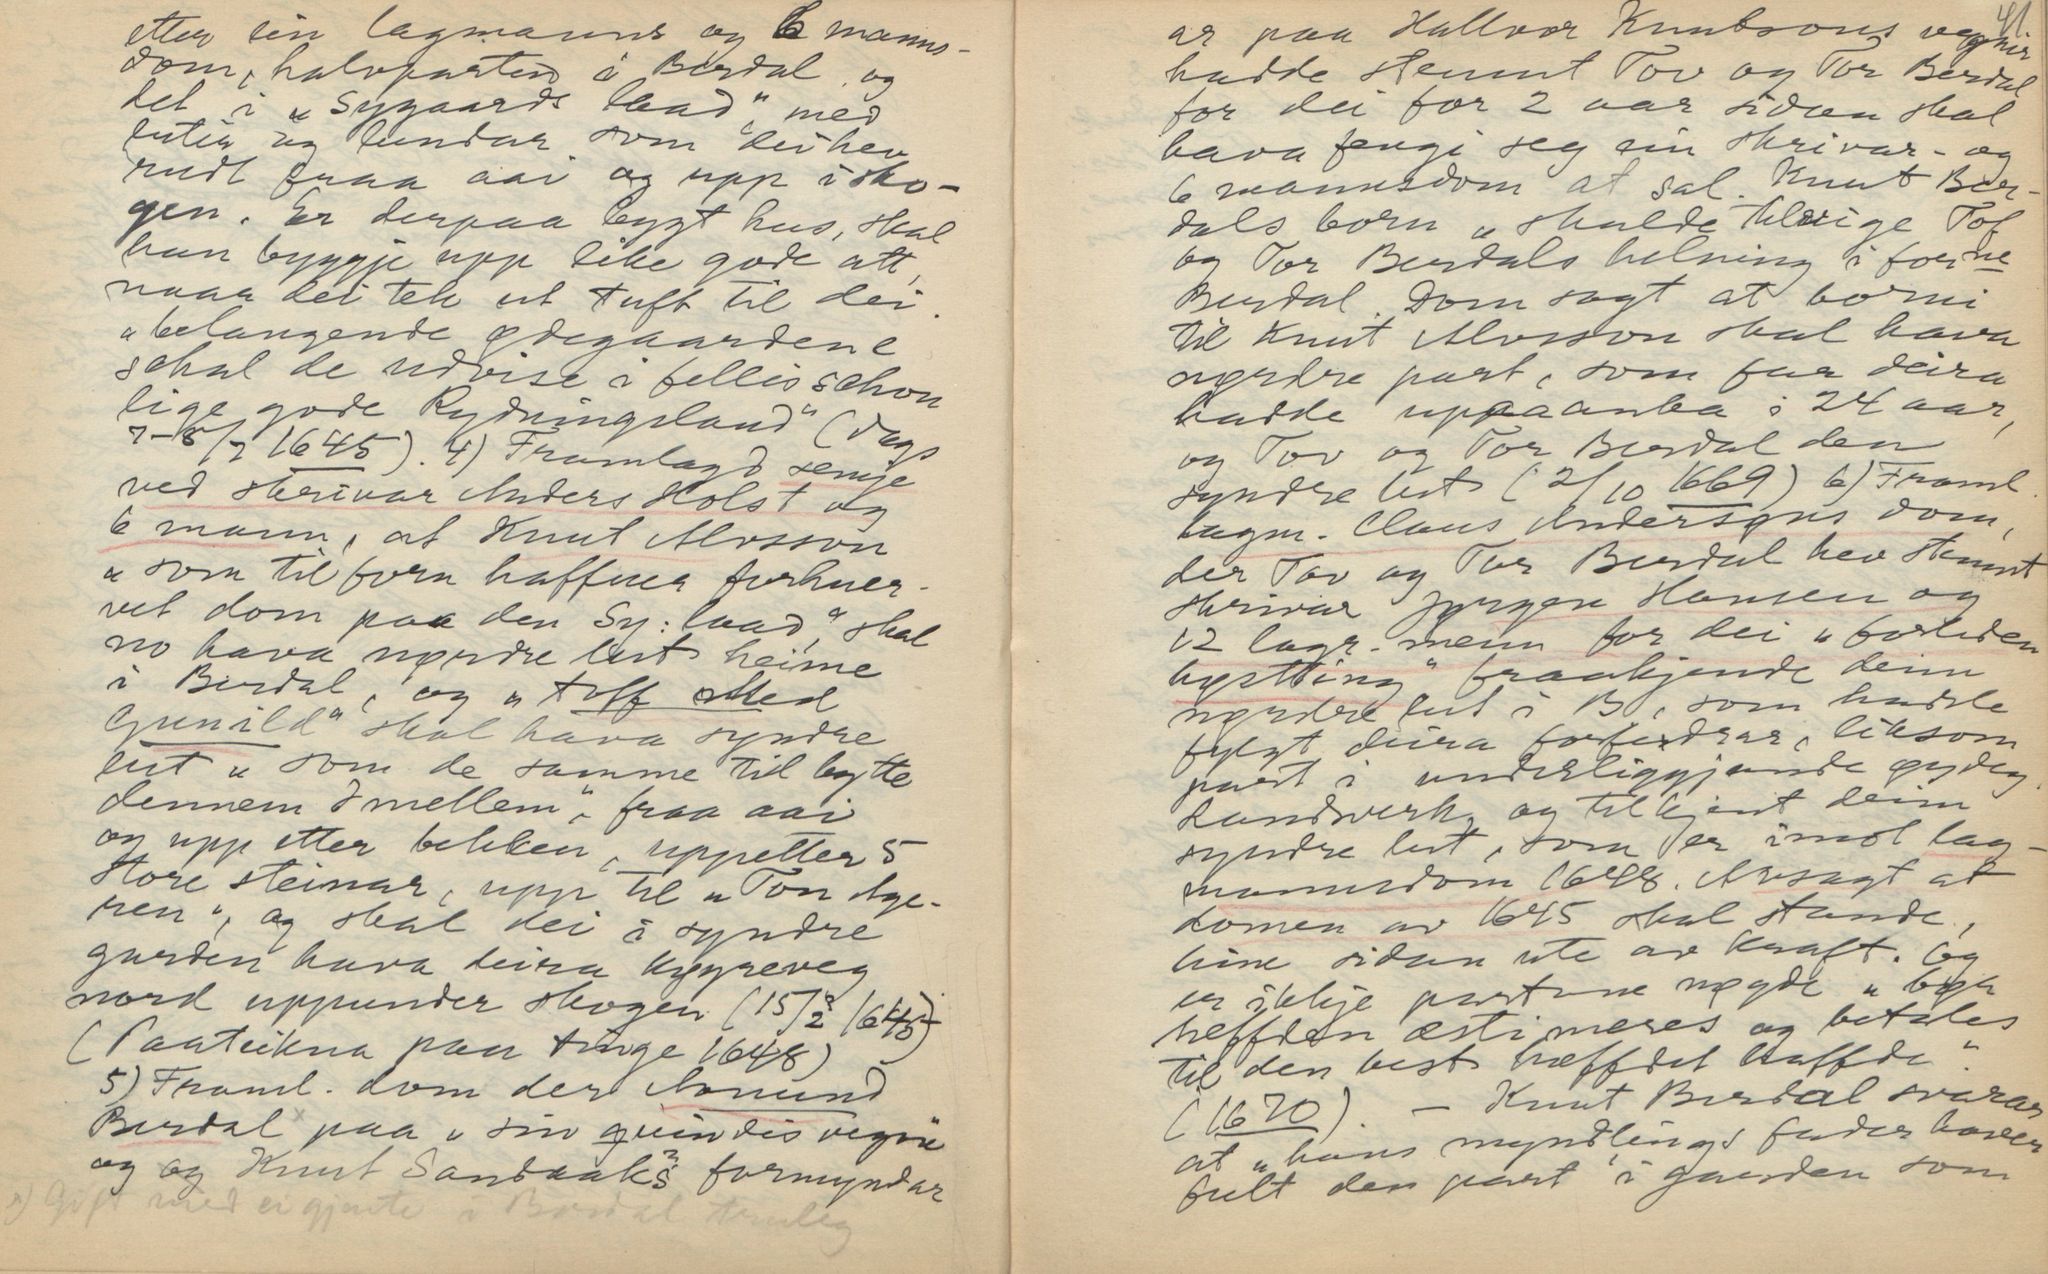 etter ein lagmanns og 6 manns-
dom, halvparten i Berdal og
det i „Sygaards laad“, med
luter og lundar som dei hev
rudt fraa aai og upp i sko-
gen. Er derpaa bygt hus, skal
han byggje upp like gode att,
naar dei tek ut tuft til dei.
„belangende ødegaardene
schal de udvise i fellis schou
lige gode Rydningsland“ (dags
7-8/7 1645). 4) Framlagd semje
ved skrivar Anders Holst og
6 mann, at Knut Alvsson
„som tilforn haffuer forhuer-
vet dom paa den Sy: laad“, skal
no hava nørdre lut heime
i Berdal, og „toff Med
Gunild“ skal hava syndre
lut „som de samme til bytte
dennem Imellem“, fraa aai
og upp etter bekken, uppetter 5
store steinar, upp til „Ton Age-
ren“, og skal dei i syndre
garden hava deira kyrreveg
nord uppunder skogen (15/2 1645)
(Paateikna paa tinge 1648)
5) Framl. dom der Aamund
Berdal paa „sin quindis vegne
og og Knut Sandaaks formyndar
x) Gift med ei gjente i Berdal truleg
41.
ar paa Hallvor Knutsons vegnir
hadde stemnt Tov og Tor Berdal
for dei for 2 aar sidan skal
hava fengi seg ein skrivar- og
6 mannsdom at sal. Knut Ber-
dals born „skulde tilvige Tof
og Tor Berdals helning i forne
Berdal. Dom sagt at borni
til Knut Alvsson skal hava
nørdre part, som far deira
hadde uppaanka i 24 aar,
og Tov og Tor Berdal den
syndre lut (2/10 1669) 6) Framl.
lagm. Claus Andersøns dom,
der Tov og Tor Berdal hev stemnt
skrivar Jørgen Hansen og
12 lagr. menn for dei „forleden
høstting“ fraakjende deim
nørdre lut i B, som hadde
fylgt deira forfedrar, liksom
part i underliggjande øydeg.
Landwerk, og tilkjent deim
syndre lut, som er imot lag-
mannsdom 1648. Avsagt at
domen av 1645 skal stande,
hine sidan ute av kraft. Og
er ikkje partane nøgde „bør
heffden æstimeres og betales
til den best hæffdet haffde“.
(1670). – Knut Berdal svarar
at „hans myndlings fader haver
fult den part i gaarden som